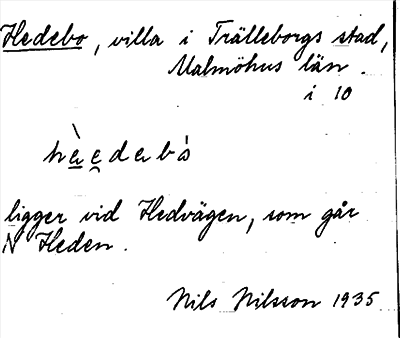 Hedebo, villa i Trälleborgs stad,
Malmöhus län.
i 10
hàedebó
ligger vid Hedvägen, som går
N Heden.
Nils Nilsson 1935